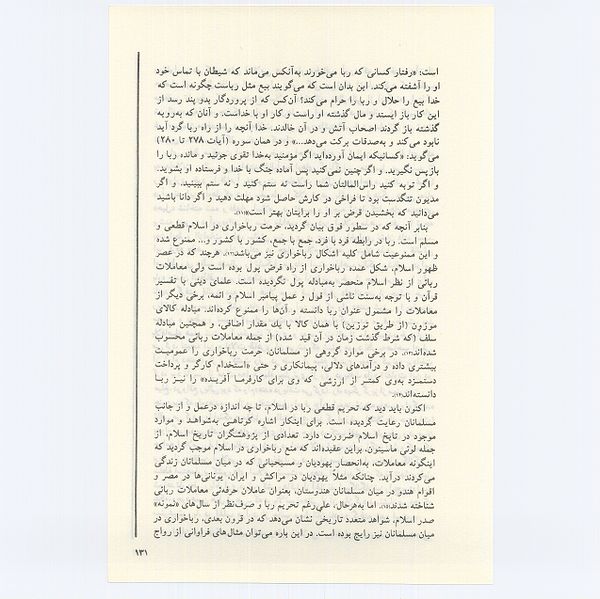 است: «رفتار کسانی که ربا می‌خورند به‌آنکس می‌ماند که شیطان با تماس خود
او را آشفته می‌کند. این بدان است که می‌گویند بیع مثل رباست چگونه است که
خدا بیع را حلال و ربا را حرام می‌کند؟ آن‌کس که از پروردگار پدو پند رسد از
این کار باز ایستد و مال گذشته او راست و کار او با خداست. و آنان که به‌رویه
گذشته باز گردند اصحاب آتش و در آن خالدند. خدا آنچه را از راه ربا گرد آید
نابود می کند و به‌صدقات برکت می‌دهد...» و در همان سوره (آیات ۲۷۸ تا ۲۸۰)
می‌گوید: «کسانیکه ایمان آورده‌اید اگر مؤمنید به‌خدا تقوی جوئید و مانده ربا را
بازپس نگیرید. و اگر چنین نمی‌کنید پس آماده جنگ با خدا و فرستاده او بشوید.
و اگر توبه کنید راس‌المالتان شما راست نه ستم کنید و نه ستم ببینید. و اگر
مدیون تنگدست بود تا فراخی در کارش حاصل شود مهلت دهید و اگر دانا باشید
می‌دانید که بخشیدن قرض بر او را برایتان بهتر است»
بنابر آنچه که در سطور فوق بیان گردید، حرمت رباخواری در اسلام قطعی و
مسلم است. ربا در رابطه فرد با فرد، جمع با جمع، کشور با کشور و... ممنوع شده
و این ممنوعیت شامل کلیه اشکال رباخواری نیز می‌باشد. هرچند که در عصر
ظهور اسلام، شکل عمده رباخواری از راه قرض پول بوده است ولی معاملات
ربائی از نظر اسلام منحصر به‌مبادله پول نگردیده است. علمای دینی با تفسیر
قرآن و با توجه به‌سنت ناشی از قول و عمل پیامبر اسلام و ائمه، برخی دیگر از
معاملات را مشمول عنوان ربا دانسته و آن‌ها را ممنوع کرده‌اند. مبادله کالای
موزون (از طریق توزین) با همان کالا با یك مقدار اضافی، و همچنین مبادله
سلف (که شرط گذشت زمان در آن قید شده) از جمله معاملات ربائی محسوب
شده‌اند. در برخی موارد گروهی از مسلمانان، حرمت رباخواری را عمومیت
بیشتری داده و درآمدهای دلالی، پیمانکاری و حتی «استخدام کارگر و پرداخت
دستمزد به‌وی کمتر از ارزشی که وی برای کارفرما آفریده» را نیز ربا
دانسته‌اند.
اکنون باید دید که تحریم قطعی ربا در اسلام، تا چه اندازه درعمل و از جانب
مسلمانان رعایت گردیده است. برای اینکار اشاره کوتاهی به‌شواهد و موارد
موجود در تاریخ اسلام ضرورت دارد. تعدادی از پژوهشگران تاریخ اسلام، از
جمله لوئی ماسینون، براین عقیده‌اند که منع رباخواری در اسلام موجب گردید که
اینگونه معاملات، به‌انحصار یهودیان و مسیحیانی که در میان مسلمانان زندگی
می‌کردند درآید. چنانکه مثلاً یهودیان در مراکش و ایران، یونانی‌ها در مصر و
اقوام هندو در میان مسلمانان هندوستان، بعنوان عاملان حرفه‌ئی معاملات ربائی
شناخته شدند. اما به‌هرحال، علی‌رغم تحریم ربا و صرف‌نظر از سال‌های «نمونه»
صدر اسلام، شواهد متعدد تاریخی نشان می‌دهد که در قرون بعدی، رباخواری در
میان مسلمانان نیز رایج بوده است. در این باره می‌توان مثال‌های فراوانی از رواج
۱۳۱